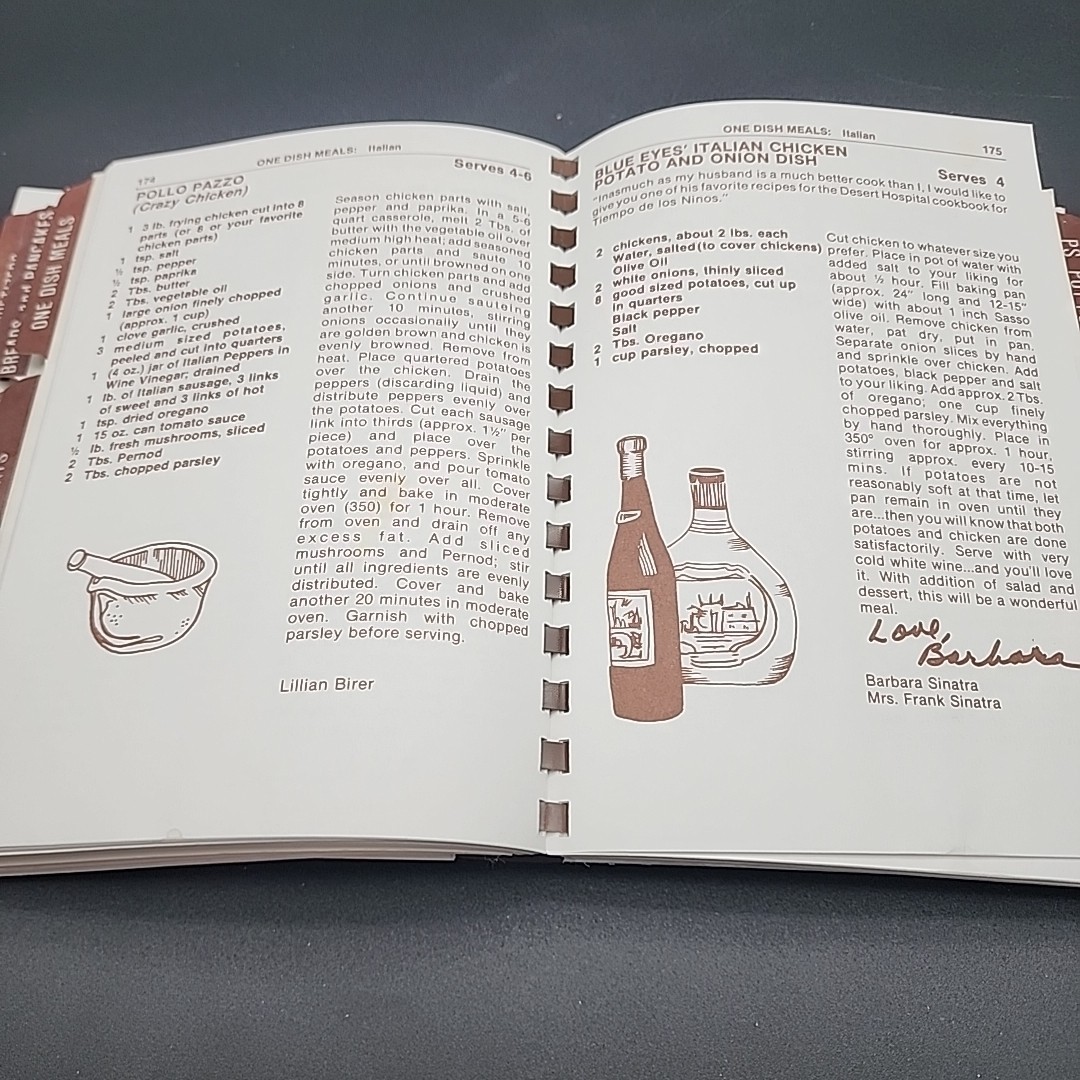 174
ONE DISH MEALS: Italian
POLLO PAZZO
(Crazy Chicken)
Serves 4-6
1 3 lb. frying chicken cut into 8
parts (or 8 or your favorite
chicken parts)
1 tsp. salt
½ tsp. pepper
½ tsp. paprika
2 Tbs. butter
2 Tbs. vegetable oil
1 large onion finely chopped
(approx. 1 cup)
1 clove garlic, crushed
3 medium sized potatoes,
peeled and cut into quarters
1 (4 oz.) jar of Italian Peppers in
Wine Vinegar; drained
1 lb. of Italian sausage, 3 links
of sweet and 3 links of hot
1 tsp. dried oregano
1 15 oz. can tomato sauce
½ lb. fresh mushrooms, sliced
2 Tbs. Pernod
2 Tbs. chopped parsley
Season chicken parts with salt,
pepper and paprika. In a 5-6
quart casserole, melt 2 Tbs. of
butter with the vegetable oil over
medium high heat; add seasoned
chicken parts and saute 10
minutes, or until browned on one
side. Turn chicken parts and add
chopped onions and crushed
garlic. Continue sauteing
another 10 minutes, stirring
onions occasionally until they
are golden brown and chicken is
evenly browned. Remove from
heat. Place quartered potatoes
over the chicken. Drain the
peppers (discarding liquid) and
distribute peppers evenly over
the potatoes. Cut each sausage
link into thirds (approx. 1½" per
piece) and place over the
potatoes and peppers. Sprinkle
with oregano, and pour tomato
sauce evenly over all. Cover
tightly and bake in moderate
oven (350) for 1 hour. Remove
from oven and drain off any
excess fat. Add sliced
mushrooms and Pernod; stir
until all ingredients are evenly
distributed. Cover and bake
another 20 minutes in moderate
oven. Garnish with chopped
parsley before serving.
Lillian Birer
ONE DISH MEALS
BREADS AND PANCAKES
ONE DISH MEALS: Italian
175
BLUE EYES' ITALIAN CHICKEN
POTATO AND ONION DISH
Serves 4
"Inasmuch as my husband is a much better cook than I, I would like to
give you one of his favorite recipes for the Desert Hospital cookbook for
Tiempo de los Ninos."
2 chickens, about 2 lbs. each
Water, salted (to cover chickens)
Olive Oil
2 white onions, thinly sliced
8 good sized potatoes, cut up
in quarters
Black pepper
Salt
2 Tbs. Oregano
1 cup parsley, chopped
Cut chicken to whatever size you
prefer. Place in pot of water with
added salt to your liking for
about ½ hour. Fill baking pan
(approx. 24" long and 12-15"
wide) with about 1 inch Sasso
olive oil. Remove chicken from
water, pat dry, put in pan.
Separate onion slices by hand
and sprinkle over chicken. Add
potatoes, black pepper and salt
to your liking. Add approx. 2 Tbs.
of oregano; one cup finely
chopped parsley. Mix everything
by hand thoroughly. Place in
350° oven for approx. 1 hour,
stirring approx. every 10-15
mins. If potatoes are not
reasonably soft at that time, let
pan remain in oven until they
are...then you will know that both
potatoes and chicken are done
satisfactorily. Serve with very
cold white wine...and you'll love
it. With addition of salad and
dessert, this will be a wonderful
meal.
Love,
Barbara
Barbara Sinatra
Mrs. Frank Sinatra